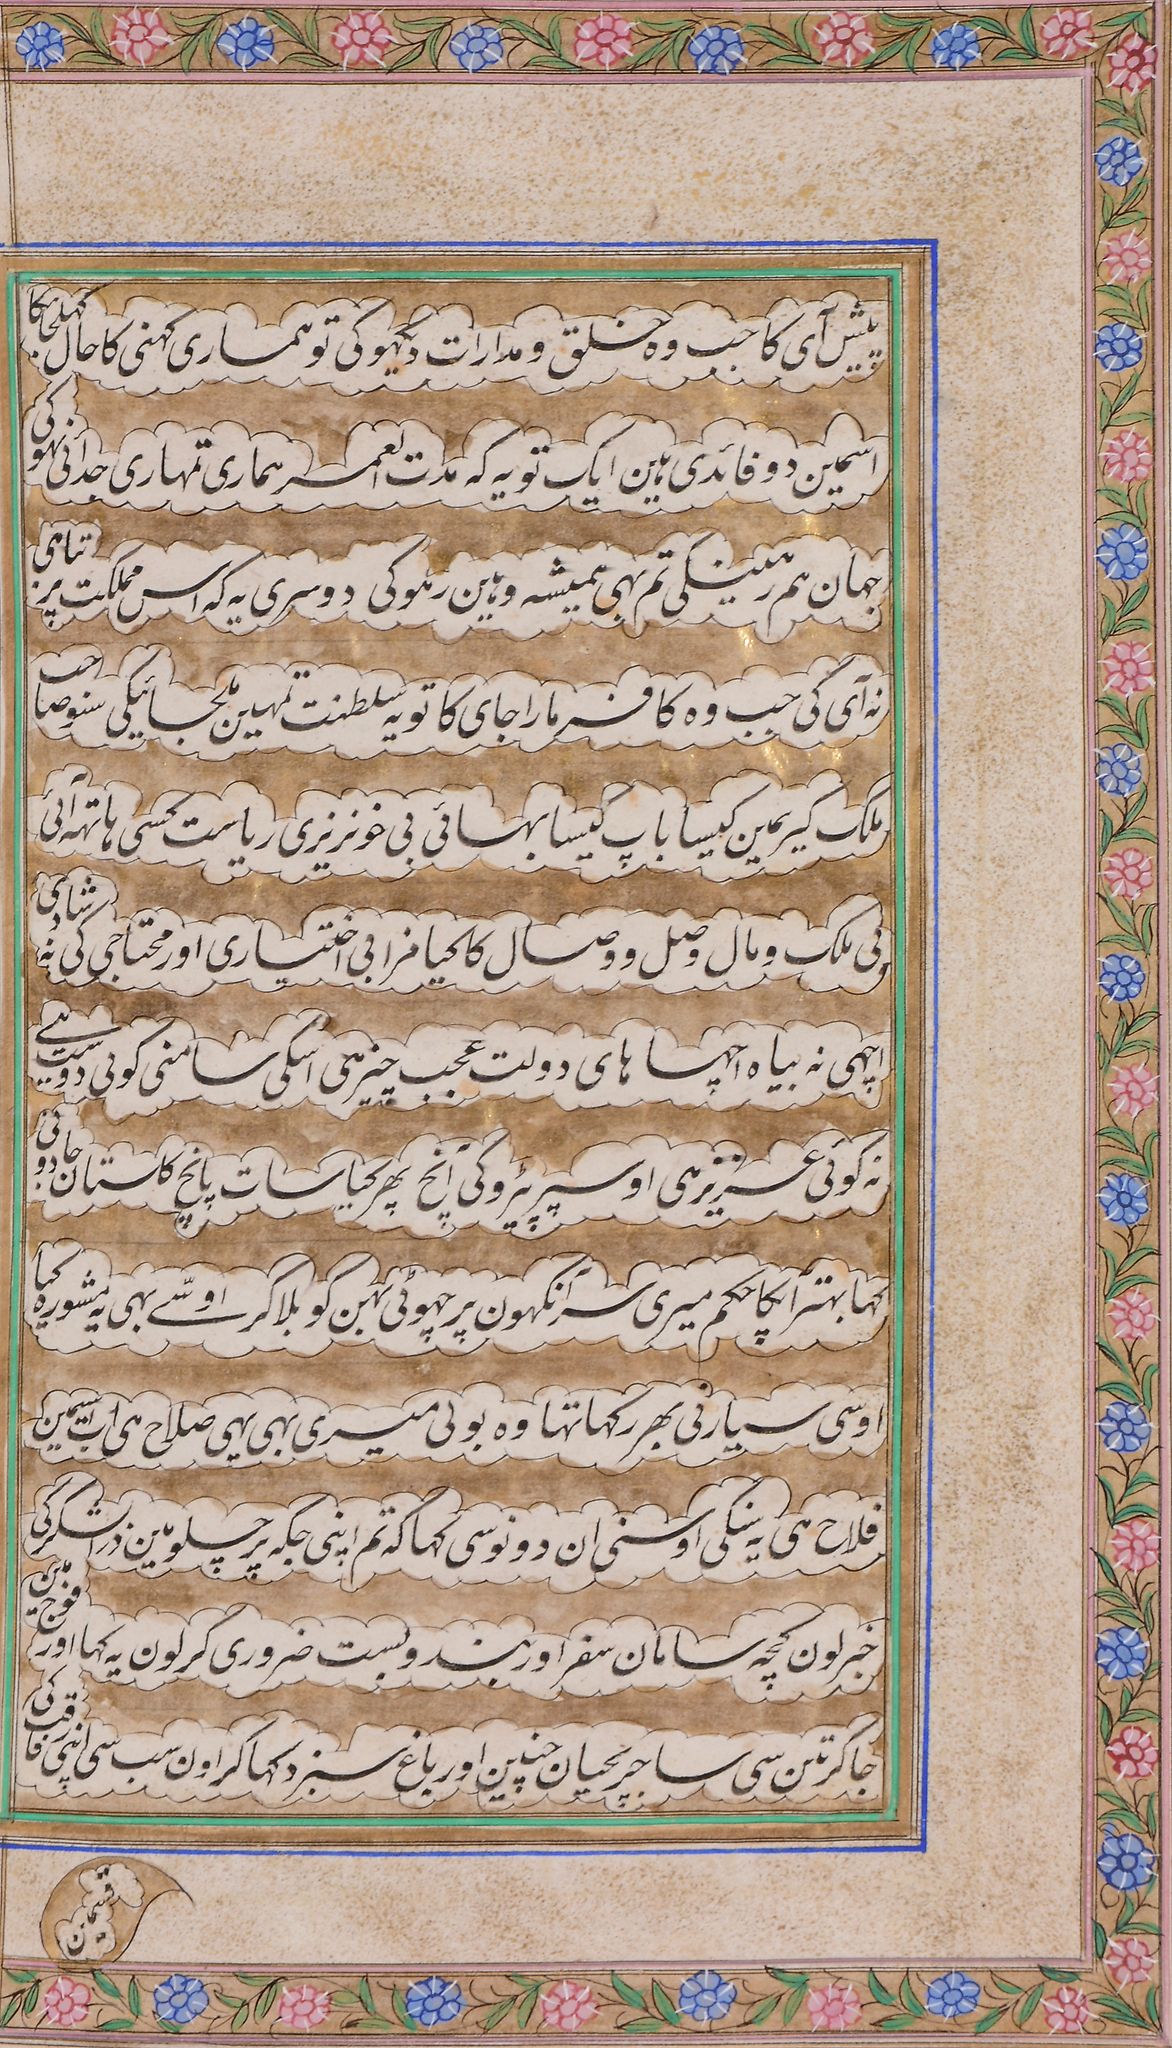 پیش آی کا جب وہ خلق و مدارات دیکھوگی تو ہماری کہنی کا حال کھلجایگا
اسمین دو فائدی ہین ایک تو یہ کہ مدت العمر ہماری تمہاری جدائی نہوگی
جہان ہم رہینگی تم بہی ہمیشہ وہین رہوگی دوسری یہ کہ اس مملکت پر تباہی
نہ آی گی جب وہ کافر مارا جای کا تو یہ سلطنت تمہین ملجائیگی سنو صاحب
ملک گیریمین کیسا باپ کیسا بہائی بی خونریزی ریاست کسی ہاتھہ آئی
بی ملک و مال وصل و وصال کا کیا مزا بی اختیاری اور محتاجی کی نہ شادی
اچہی نہ بیاہ اچہا ہای دولت عجب چیز ہی اسکی سامنی کوئی دوست ہے
نہ کوئی عزیز ہی اوسپر پڑوگی آنچ پھر کیا سات پانچ کا ستان جادو بی
کہا بہتر آپکا حکم میری سر آنکہون پر چہوٹی بہن کو بلا کر اوسّے بہی یہ مشورہ کیا
اوسی سیار نی بھر رکہا تہا وہ بولی میری بہی یہی صلاح ہی اب اسیمین
فلاح ہی یہ سنکی اوسنی ان دونوسی کہا کہ تم اپنی جگہ پر چلو مین ذرا لشکر کی
خبر لون کچہ سامان سفر اور بندوبست ضروری کر لون یہ کہا اور فوج مین
جا کر تین سی ساحر یحیان چنین اور باغ سبز دکہا کر اون سب سی اپنی رفاقت کی
قسمین